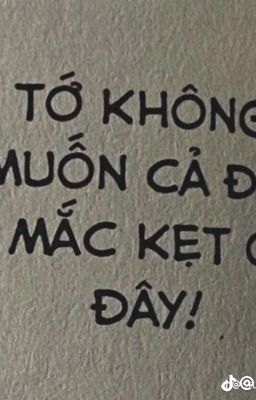 TỚ KHÔNG
MUỐN CẢ
MẮC KẸT
ĐÂY!